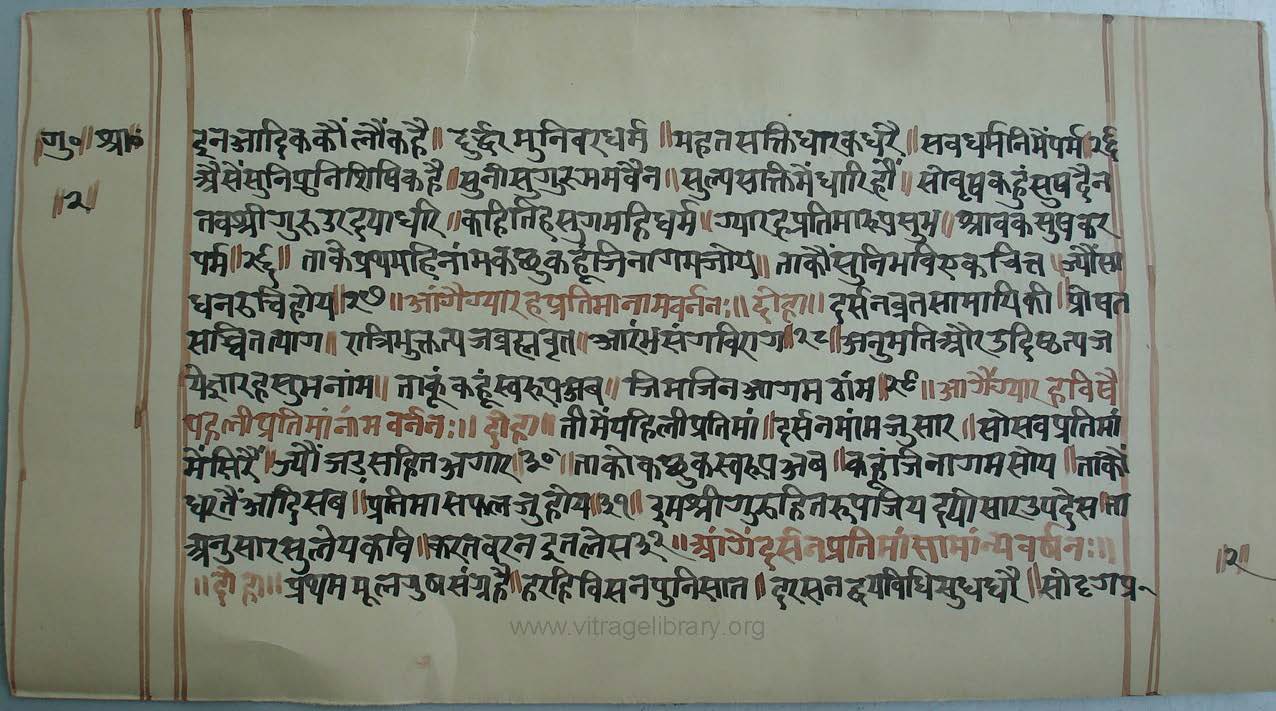 गु०॥ श्रा०
॥२॥
दून आदिककौं लौंक है॥ दुर्द्धर मुनिवरधर्म॥ महत सक्तिधारक धरै॥ सव धर्मनिमैं पर्म॥२५॥
अैसैं सुनि पुनि शिषि कहै॥ सुनौ सुगुरु मम वैन॥ सुल्प सक्ति मैं धारि हौं॥ सो वृष कहुं सुष दैन
तव श्री गुरु उर दया धारि॥ कहि तिह सुगमहि धर्म॥ ग्यारह प्रतिमा रूप सुभ॥ श्रावक सुषकर
पर्म॥२६॥ ताकै प्रथमहि नांम कछु कहूं जिनागम जोय॥ ताकौं सुनि भवि रुकचित्त॥ ज्यौं सा
धन रुचि होय॥२७॥ आंगैं ग्यारह प्रतिमा नाम वर्ननः॥ दोहा॥ दर्सन व्रत सामायिकी॥ प्रोषत
सच्चित त्याग॥ रात्रिभुक्त त्यज व्रह्मवृत॥ आरंभ संग विराग॥२८॥ अनुमति और उदिष्ट त्यज
ये ग्यारह सुभ नांम॥ ताकूं कहूं स्वरूप अब॥ जिम जिन आगम ठांम॥२९॥ आगैं ग्यारह विषै
पहली प्रतिमां नांम वर्ननः॥ दोहा॥ तीमैं पहिली प्रतिमां॥ दर्सन मांम जु सार॥ सो सव प्रतिमां
मैं सिरै॥ ज्यौं जड़ सहित अगार॥३०॥ ताको कछुक स्वरूप अब॥ कहूं जिनागम सोय॥ ताकौं
धरतैं आदि सव॥ प्रतिमा सफल जु होय॥३१॥ इम श्री गुरु हित रूप जिय दयौ सार उपदेस॥ ता
अनुसार सु लेय कवि॥ करत वरन दुत लेस३२॥ आंगैं दर्सन प्रतिमां सामांन्य वर्षनः॥
॥दोहा॥ प्रथम मूलगुष संग्रहै॥ हरहि विसन पुनि सात॥ दरसन द्वय विधि सुध धरै॥ सो दृग प्र
॥२
www.vitragelibrary.org